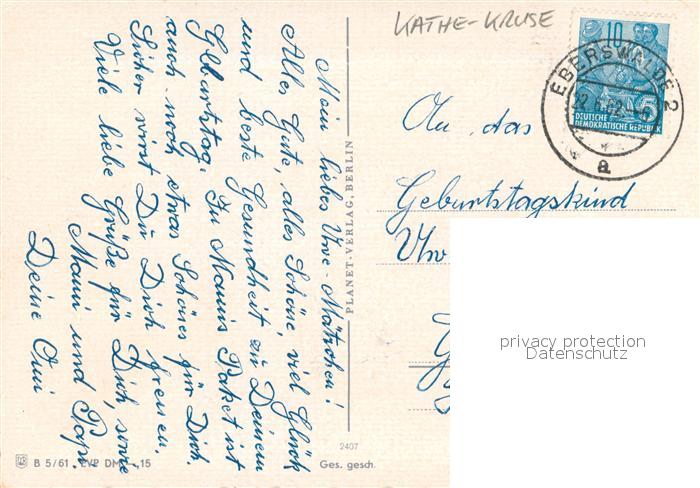 KATHE-KRUSE
10
EBERSWALDE 2
22.6.62
5
DEUTSCHE
DEMOKRATISCHE REPUBLIK
a
Mein liebes Uwe-Mätzchen!
Alles Gute, alles Schöne, viel Glück
und beste Gesundheit zu Deinem
Geburtstag. In Mamis Paket ist
auch noch etwas Schönes für Dich.
Sicher wirst Du Dich freuen.
Viele liebe Grüße für Dich, sowie
Mami und Papi.
Deine Omi
PLANET-VERLAG, BERLIN
An das
Geburtstagskind
privacy protection
Datenschutz
2407
B 5/61 EVP DM -,15
Ges. gesch.